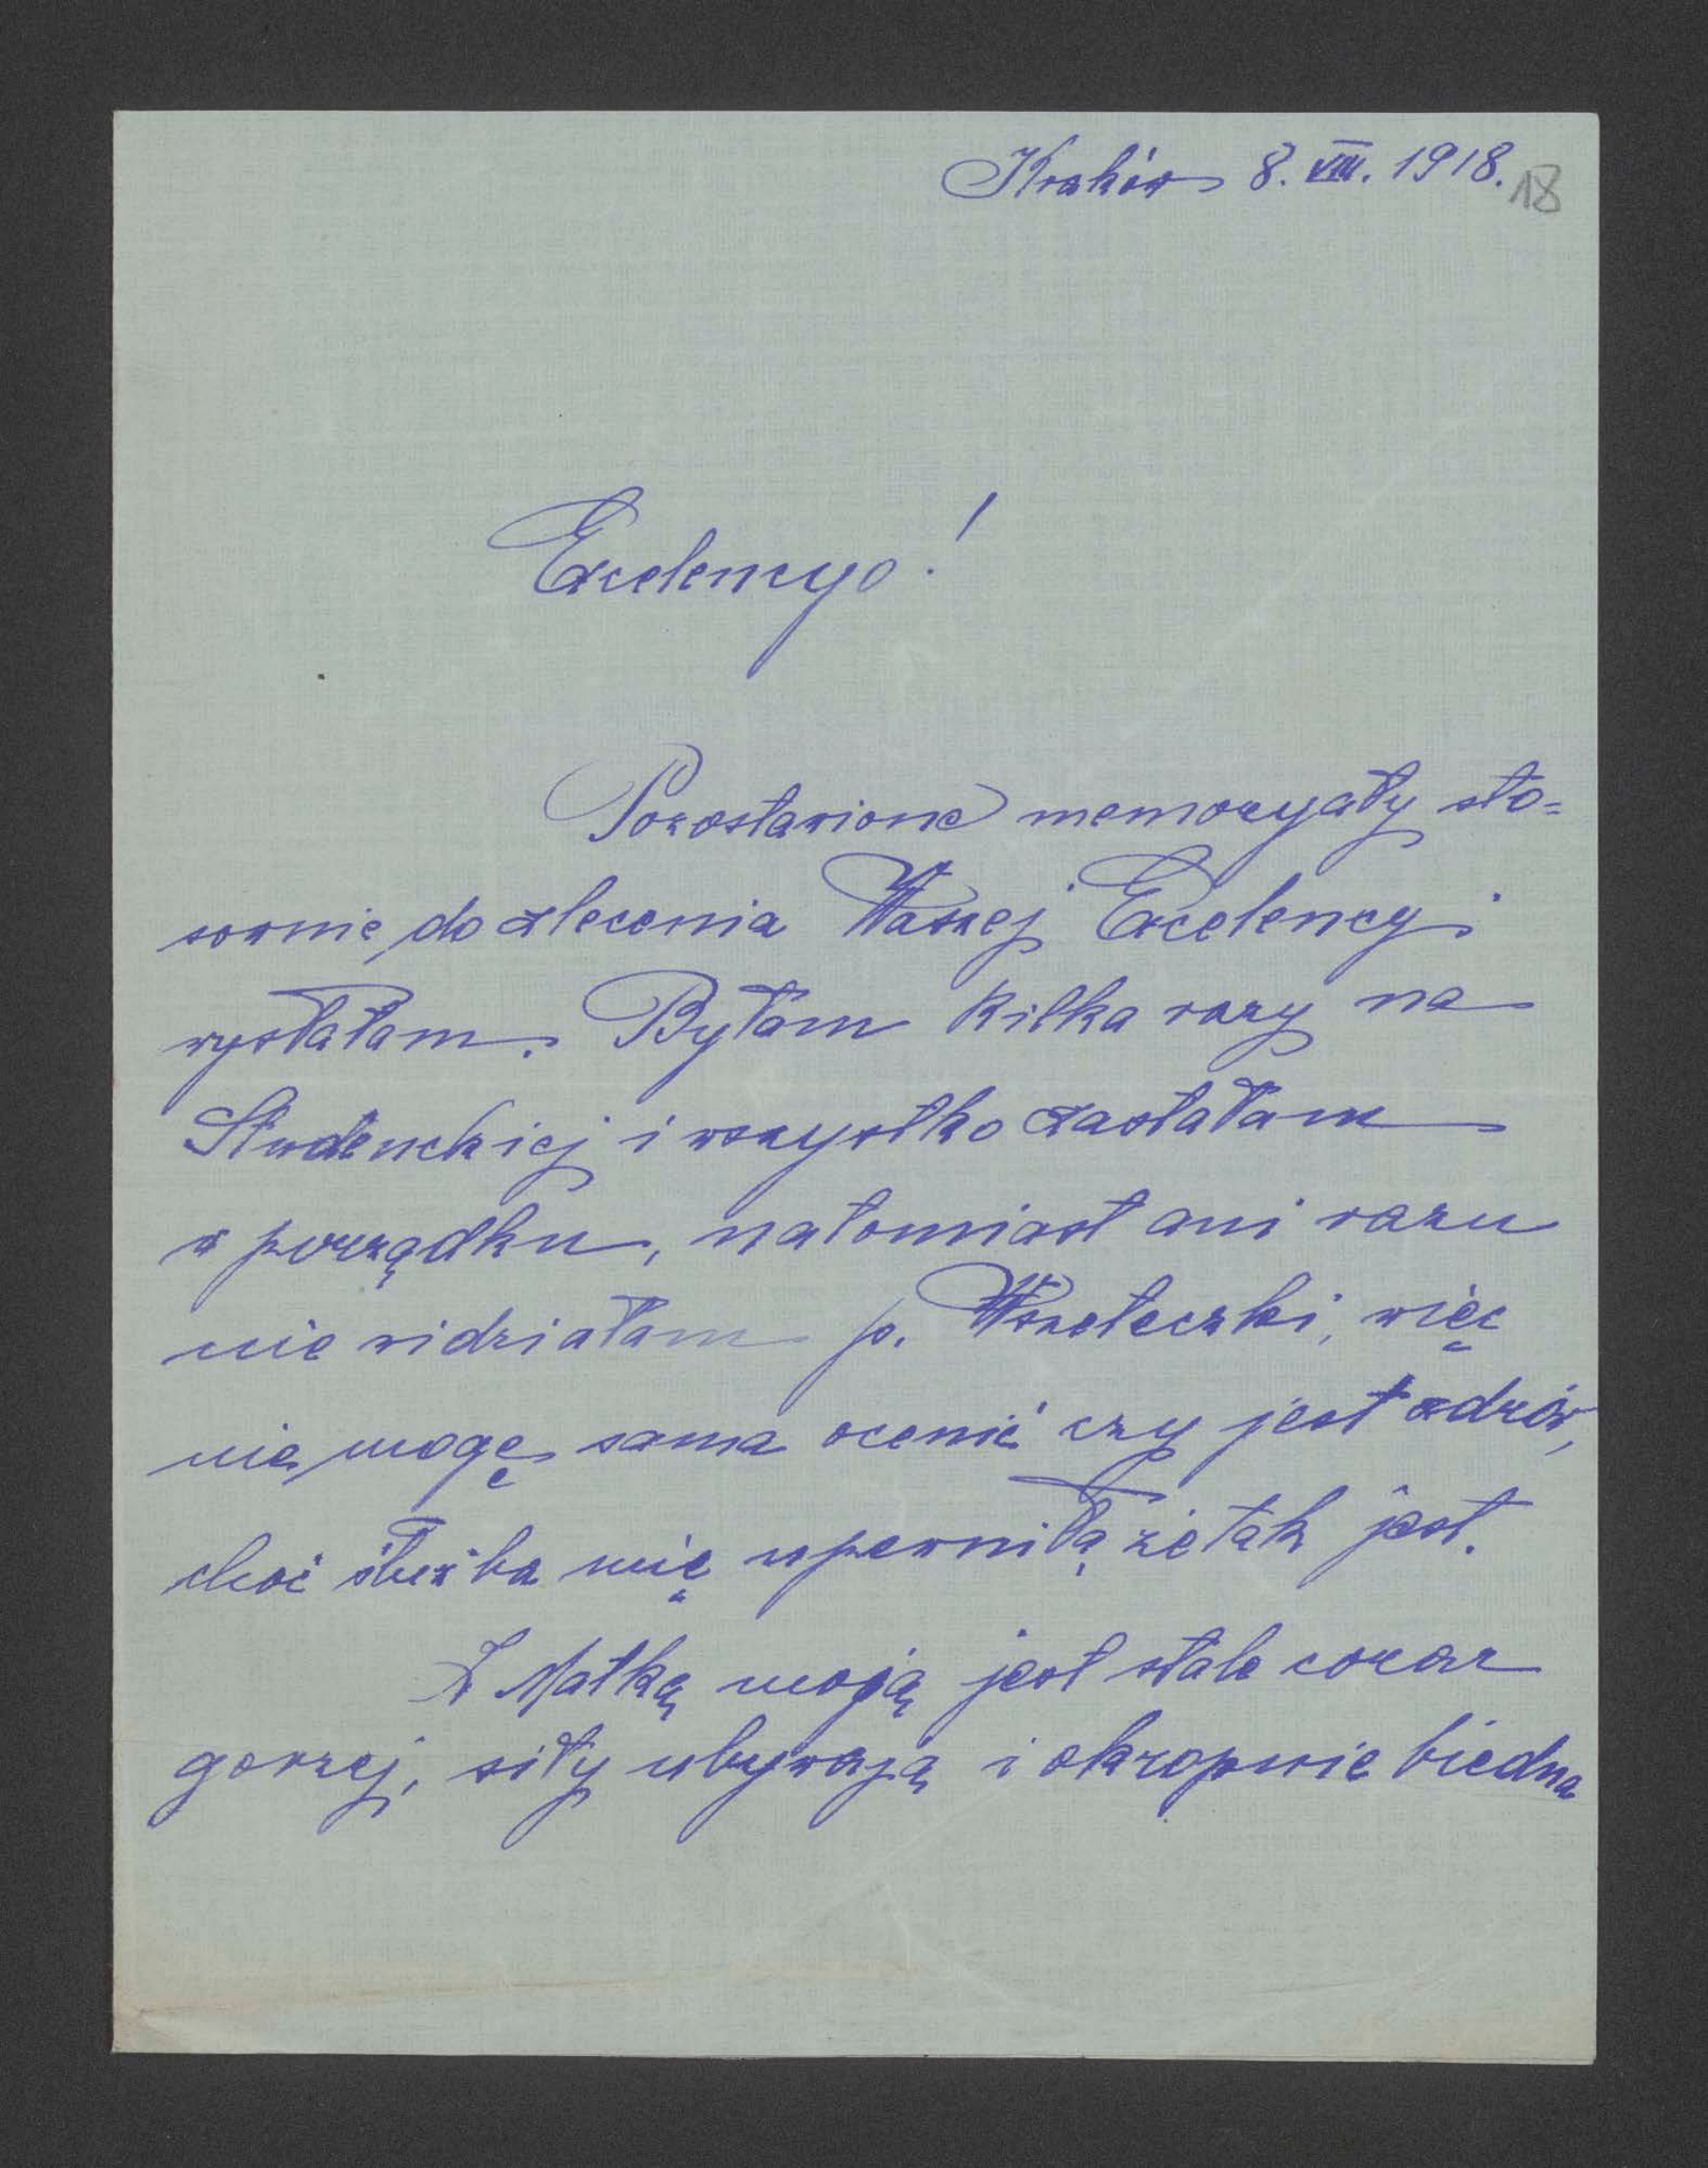 Kraków 8. VIII. 1918.
18
Excelencyo!
Pozostawione memoryały sto=
sownie do zlecenia Waszej Excelencyi
wysłałam. Byłam kilka razy na
Studenckiej i wszystko zastałam
w porządku, natomiast ani razu
nie widziałam p. Wszeteczki, więc
nie mogę sama ocenić czy jest zdrów,
choć służba mię upewniła, że tak jest.
Z Matką moją jest stale coraz
gorzej, siły ubywają i okropnie biedna